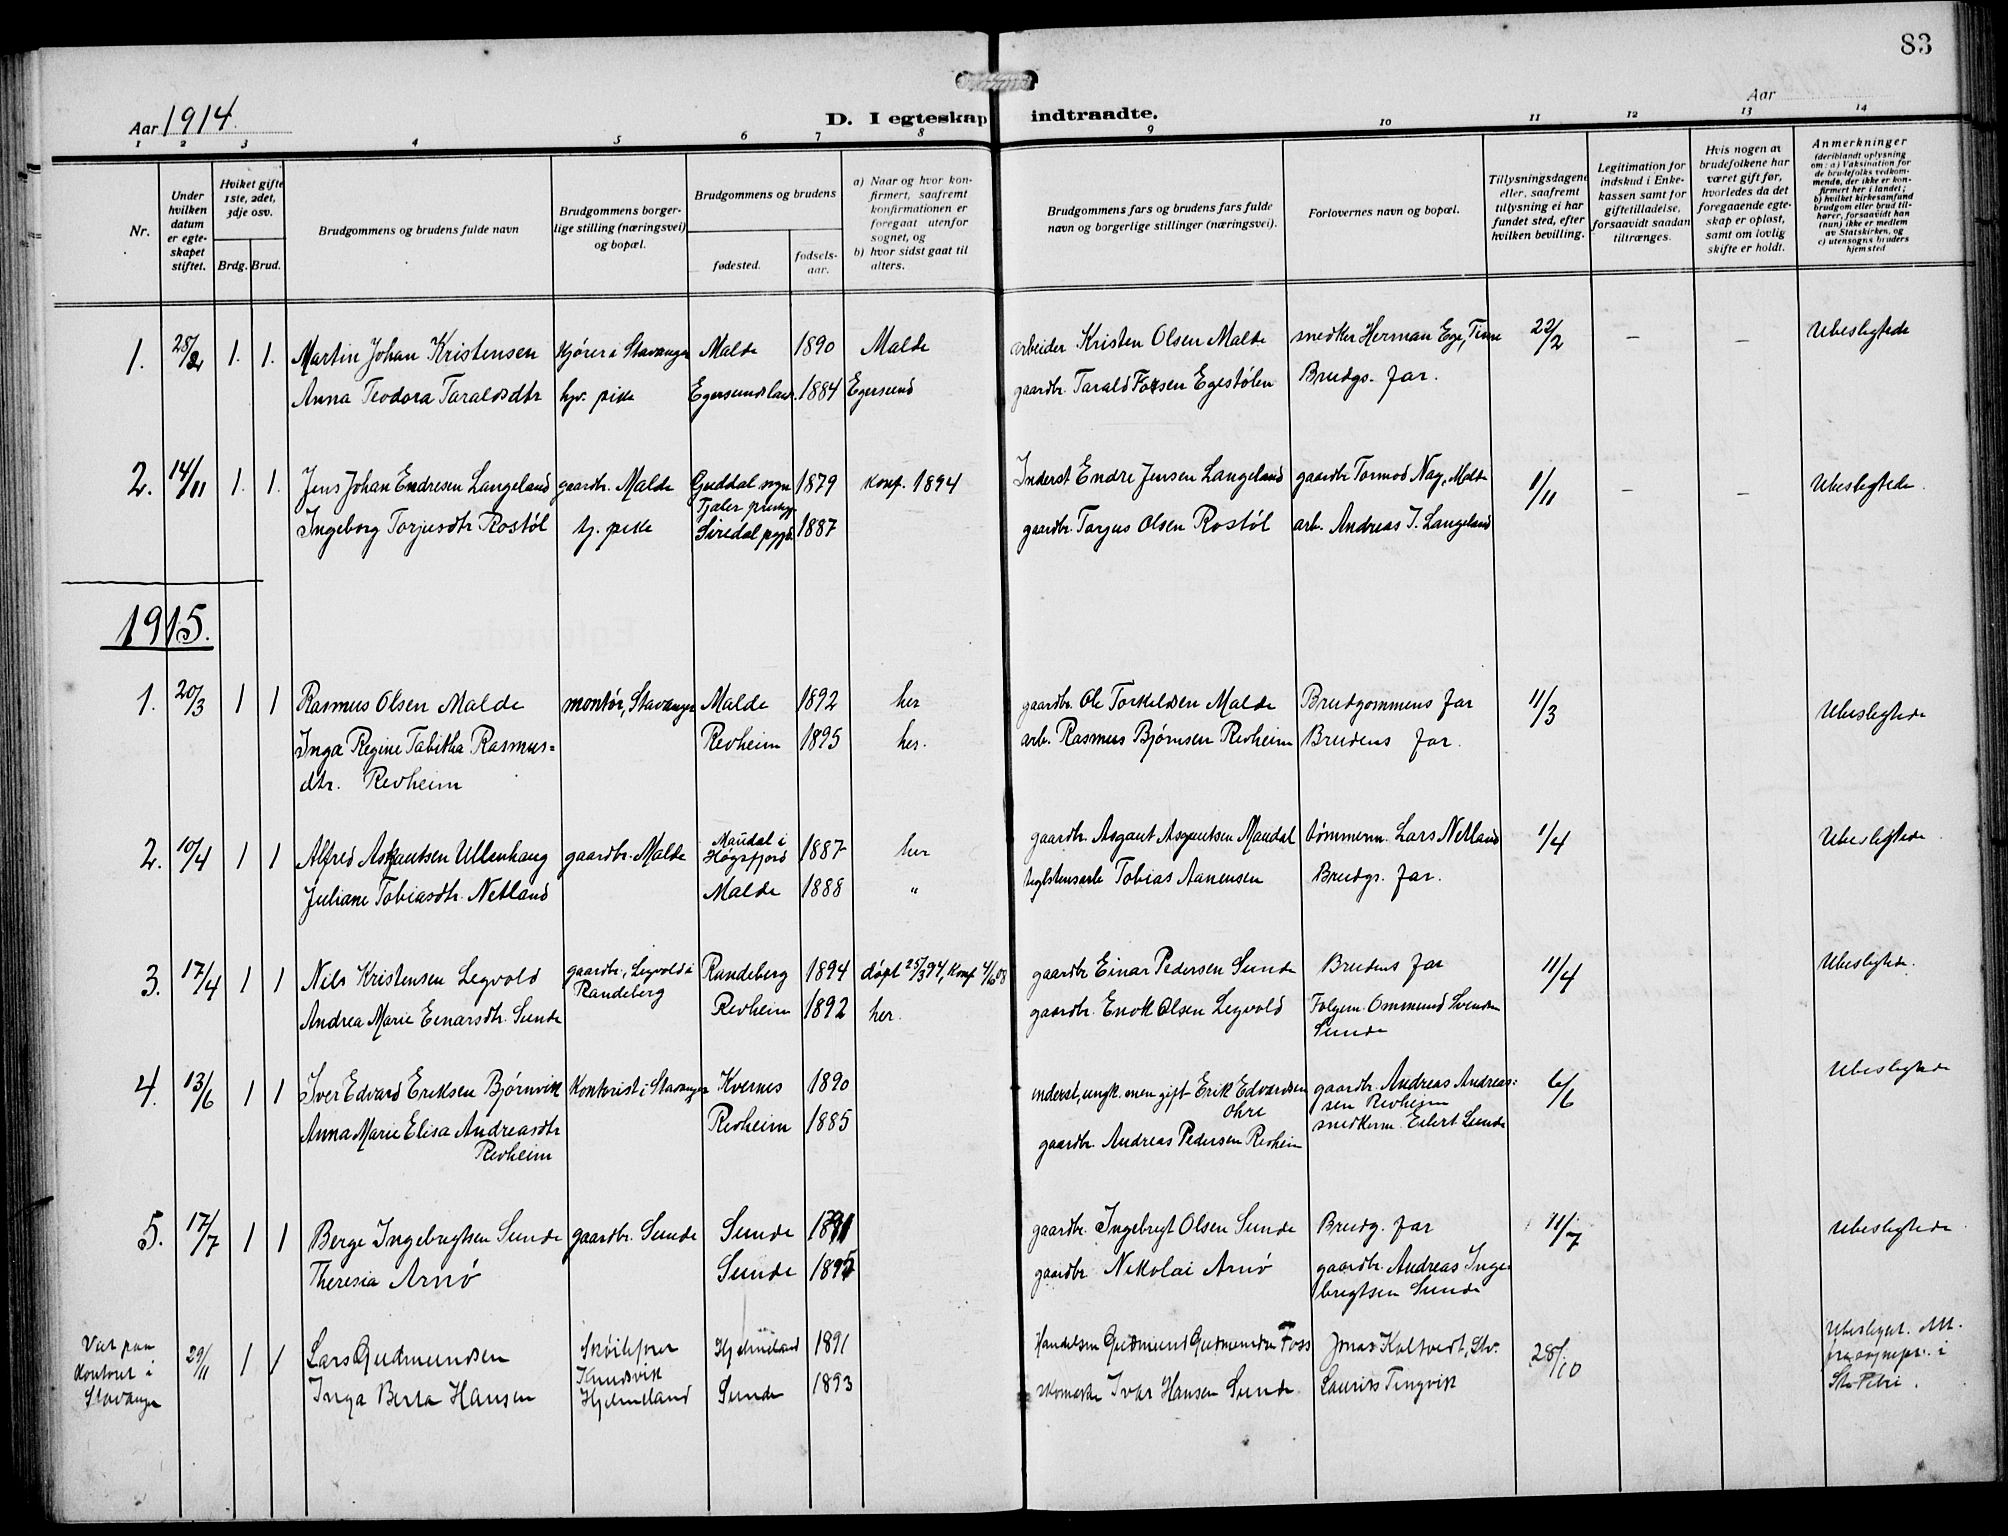 83
Aar 1914.
D. I egteskap indtraadte.
Aar
1 2 3 4 5 6 7 8 9 10 11 12 13 14
Nr.
Under hvilken datum er egteskapet stiftet.
Hvilket gifte 1ste, 2det, 3dje osv.
Brdg. Brud.
Brudgommens og brudens fulde navn
Brudgommens borgerlige stilling (næringsvei) og bopæl.
Brudgommens og brudens
fødested.
fødselsaar.
a) Naar og hvor konfirmert, saafremt konfirmationen er foregaat utenfor sognet, og
b) hvor sidst gaat til alters.
Brudgommens fars og brudens fars fulde navn og borgerlige stillinger (næringsvei).
Forlovernes navn og bopæl.
Tillysningsdagene eller, saafremt tillysning ei har fundet sted, efter hvilken bevilling.
Legitimation for indskud i Enkekassen samt for giftetilladelse, forsaavidt saadan tiltrænges.
Hvis nogen av brudefolkene har været gift før, hvorledes da det foregaaende egteskap er opløst, samt om lovlig skifte er holdt.
Anmerkninger
(deriblandt oplysning om: a) Vaksination for de brudefolks vedkommende, der ikke er konfirmert her i landet; b) hvilket kirkesamfund brudgom eller brud tilhører, forsaavidt han (hun) ikke er medlem av Statskirken, og c) utensogns bruders hjemsted
1. 28/2 1. 1. Martin Johan Kristensen kjører i Stavanger Malde 1890 Malde arbeider Kristen Olsen Malde snedker Herman Ege, Time 22/2 – – Ubeslegtede
Anna Teodora Taraldsdtr hjv. pike Egersunds land. 1884 Egersund gaardbr. Tarald Egestølen Brudgs. far.
2. 14/11 1. 1. Jens Johan Endresen Langeland gaardbr. Malde Guddal sogn 1879 konf. 1894 Inderst Endre Jensen Langeland gaardbr Tormod Nag, Malde 1/11 – – Ubeslegtede.
Fjaler prestgj.
Ingeborg Torjusdtr Rostøl tj. pike Siredal pgjd. 1887 gaardbr. Torjus Olsen Rostøl arb. Andreas J. Langeland
1915.
1. 20/3 1 1 Rasmus Olsen Malde montør, Stavanger Malde 1892 her gaardbr. Ole Torkeldsen Malde Brudgommens far 11/3 Ubeslegtede
Inga Regine Tabitha Rasmus= Revheim 1895 her. arb. Rasmus Bjørnsen Revheim Brudens far.
dtr. Revheim
2. 10/4 1 1 Alfred Asgautsen Ullenhaug gaardbr. Malde Maudal i Høgsfjord 1887 her gaardbr. Asgaut Asgautsen Maudal tømmerm. Lars Netland 1/4 Ubeslegtede
Juliane Tobiasdtr. Netland Malde 1888 " teglstensarb Tobias Aanensen Brudgs. far.
3. 17/4 1 1 Nils Kristensen Legvold gaardbr., Legvold i Randeberg Randeberg 1894 døpt 25/3 94, konf 4/10 08 gaardbr Einar Pedersen Sunde Brudens far 11/4 Ubeslegtede.
Andrea Marie Einarsdtr. Sunde Revheim 1892 her. gaardbr. Enok Olsen Legvold Folgem. Ommund Svendsen
Sunde
4. 13/6 1 1 Iver Edvard Eriksen Bjørnvik Kontorist i Stavanger Kvernes 1890 inderst, ungk. men gift Erik Edvardsen Ohre gaardbr. Andreas Andreas= 6/6 Ubeslegtede
sen Revheim
Anna Marie Elisa Andreasdtr Revheim 1885 snedkerm. Eilert Sunde
Revheim gaardbr. Andreas Pedersen Revheim
5. 17/7 1 1 Berge Ingebrigtsen Sunde gaardbr. Sunde Sunde 1891 gaardbr. Ingebrigt Olsen Sunde Brudg. far 11/7 Ubeslegtede
Theresia Arnø Sunde 1895 gaardbr Nikolai Arnø gaardbr. Andreas Inge
brigtsen Sunde
Viet paa kontoret i Stavanger 29/11 1 1 Lars Gudmundsen Hjelmeland 1891 Handelsm Gudmund Gudmundsen Foss Jonas Kaltvedt, Stv. 28/10 Ubeslegt. Att. fra sognepr. i St. Petri.
Knudsvik
Inga Berta Hansen Hjelmeland Sunde 1893 skomaker Ivar Hansen Sunde Laurits Tingvik